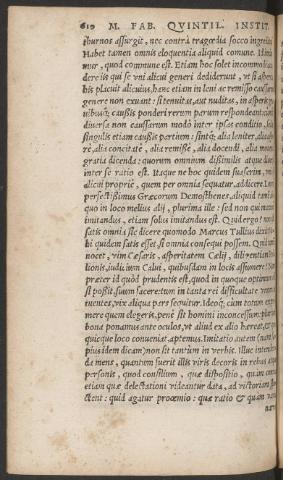 610 M. FAB. QVINTIL. INSTIT.
thurnos assurgit, nec contrà tragœdia socco ingredi
Habet tamen omnis eloquentia aliquid commune. Id
mur, quod commune est. Etiam hoc solet incommodi
dere iis qui se vni alicui generi dediderunt, vt si
bis placuit alicuius, hanc etiam in leni ac remisso causarum
genere non exuant: si tenuitas, aut nuditas, in asperis
uibusq́; caussis ponderi rerum parum respondeant:
diuersa non caussarum modò inter ipsas conditio,
singulis etiam caussis partium: sintq́; alia leniter, alia
rè, alia concitatè, alia remissè, alia docendi, alia
gratia dicenda: quorum omnium dißimilis atque
inter se ratio est. Itaque ne hoc quidem suaserim,
alicui propriè, quem per omnia sequatur, addicere.
perfectißimus Græcorum Demosthenes, aliquid
quo in loco melius alij, plurima ille: sed non qui
imitandus, etiam solus imitandus est. Quid ergo? non
satis omnia sic dicere quomodo Marcus Tullius dixit
hi quidem satis esset si omnia consequi possem. Quid
nocet, vim Cæsaris, asperitatem Celij, diligentiam
lionis, iudicium Calui, quibusdam in locis assumere?
præter id quòd prudentis est, quod in quoque optimum
si poßit, suum facere: tum in tanta rei difficultate
tuentes, vix aliqua pars sequitur. Ideoq́; cum totum
mere quem elegeris, penè sit homini inconcessum:
bona ponamus ante oculos, vt aliud ex alio hæreat, &
quicque loco conueniat aptemus. Imitatio autem (nam
pius idem dicam) non sit tantùm in verbis. Illuc
da mens, quantum fuerit illis viris decoris in rebus
personis, quod consilium, quæ dispositio, quàm
etiam quæ delectationi videantur data, ad victoriam
ctent: quid agatur proœmio: quæ ratio & quàm